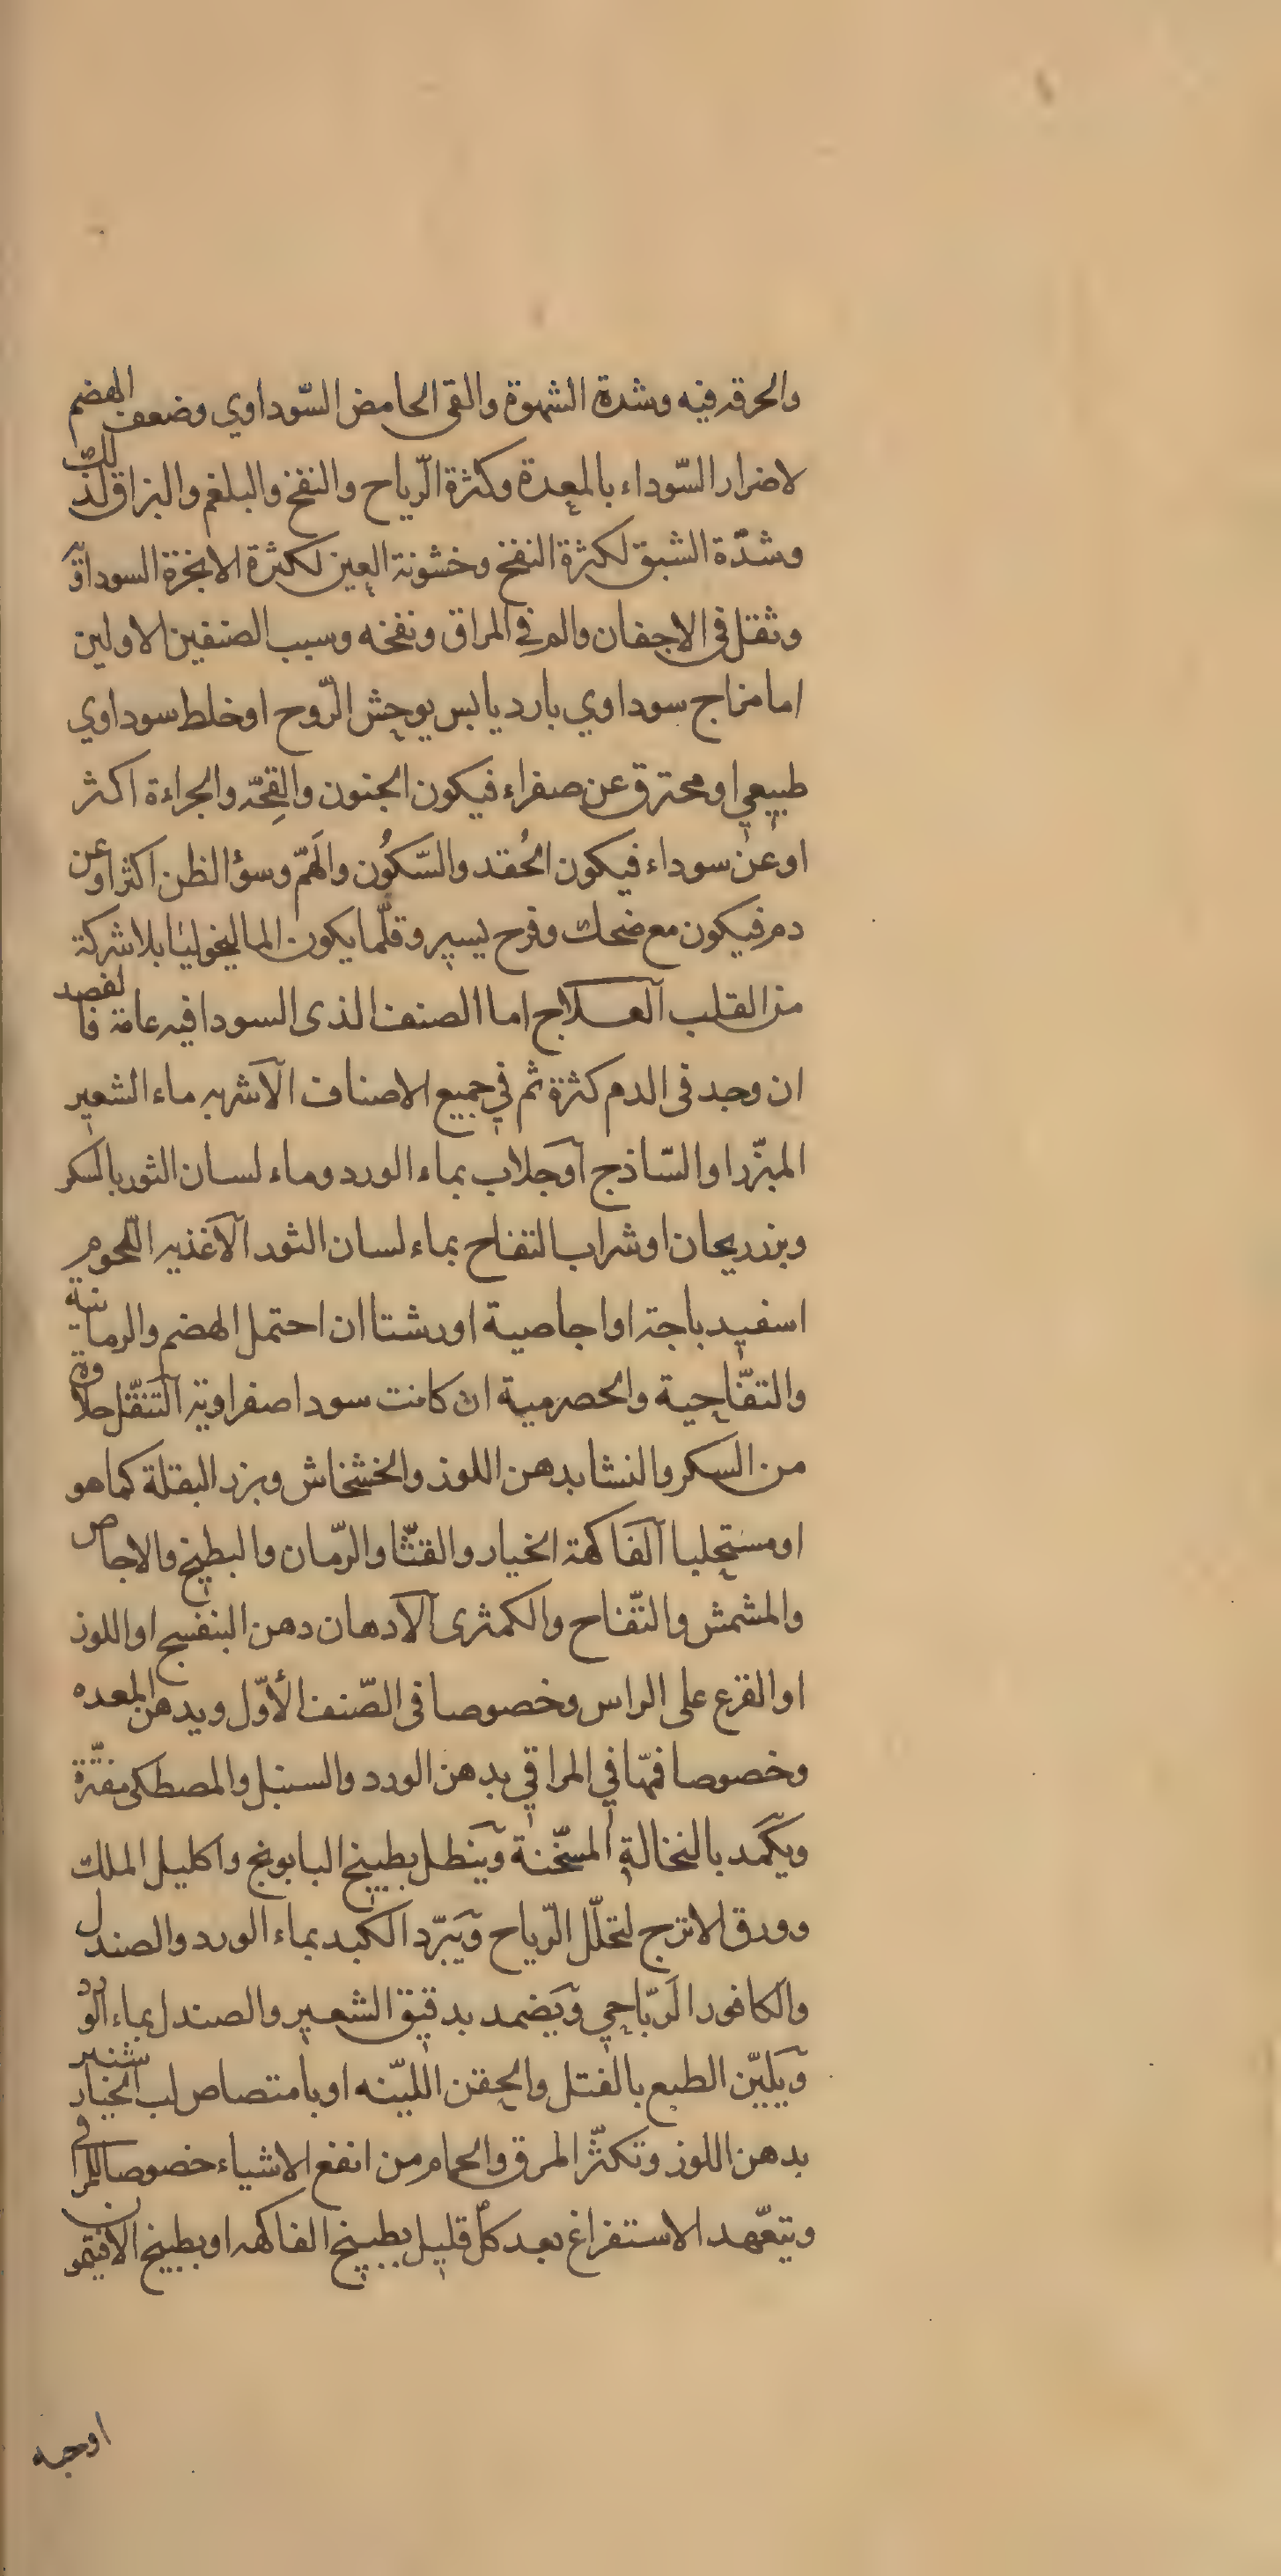 والحرقه فيه وشدة الشهوة والقى الحامض السّوداوي وضعف الهضم
لاضرار السّوداء بالمعدة وكثرة الرّياح والنفخ والبلغم والبزاق لذلك
وشدّة الشبق لكثرة النفخ وخشونة العين لكثرة الابخرة السوداوية
وثقل فى الاجفان والم في المراق ونفخه وسبب الصنفين الاولين
اما مزاج سوداوي بارد يابس يوحش الرّوح او خلط سوداوي
طبيعي او محترق عن صفراء فيكون الجنون والقِحّه والجراءة اكثر
او عن سوداء فيكون الحُقد والسّكُون والهَمّ وسؤ الظن اكثر او عن
دم فيكون مع ضحك وفرح يسير وقلّما يكون الماليخوليا بلا شركة
من القلب العلاج اما الصنف الذى السودا فيه عامة فالفصد
ان وجد فى الدم كثرة ثم في جميع الاصناف الآشربه ماء الشعير
المبزّر او السّاذج اوجلاب بماء الورد وماء لسان الثور بالسكر
وبزر ريحان او شراب التفاح بماء لسان الثور الآغذيه اللّحوم
اسفيدباجة او اجاصية او رشتا ان احتمل الهضم والرمانية
والتفّاحية والحصرمية ان كانت سودا صفراوية التنقّل حلاوة
من السكر والنشا بدهن اللوز والخشخاش وبزر البقلة كما هو
او مستحلبا الفاكهة الخيار والقثّا والرّمان والبطيخ والاجاص
والمشمش والتّفاح والكمثرى الآدهان دهن البنفسج او اللوز
او القرع على الراس وخصوصا فى الصّنف الأوّل ويدهن المعده
وخصوصا فمّها في المراقي بدهن الورد والسنبل والمصطكى مفتّرة
ويكمّد بالنخالة المسخّنة وينطل بطبيخ البابونج واكليل الملك
وورق الاترج لتحلّل الرّياح ويبرّد الكبد بماء الورد والصندل
والكافور الرّباحي ويضمد بدقيق الشعير والصندل بماء الورد
ويليّن الطبع بالفتل والحقن الليّنه او بامتصاص لب الخيارشنبر
بدهن اللوز وتكثّر المرق والحمام من انفع الاشياء خصوصا للمراقى
ويتعّهد الاستفراغ بعد كلّ قليل بطبيخ الفاكهه او بطبيخ الافتيمون
اوحبه